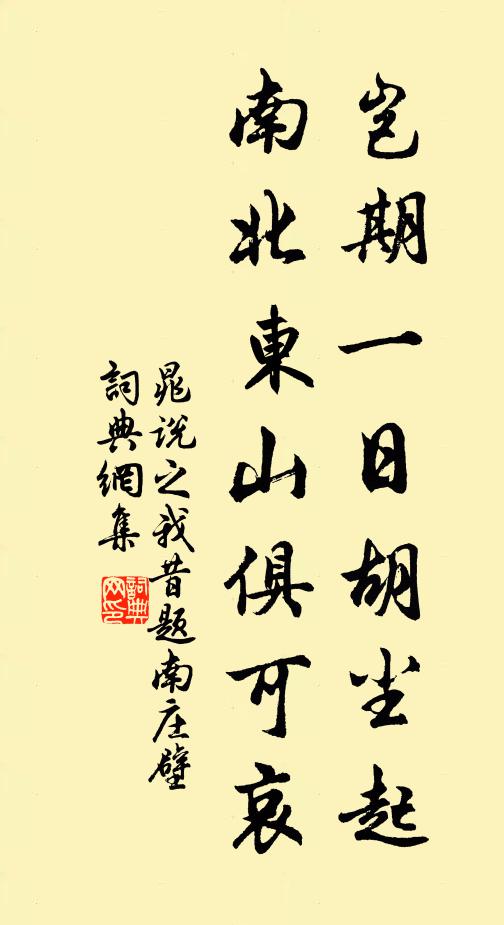 豈期一日胡尘起
南北東山俱可哀
晁説之我昔题南庄壁
詞典網集
詞典
网印